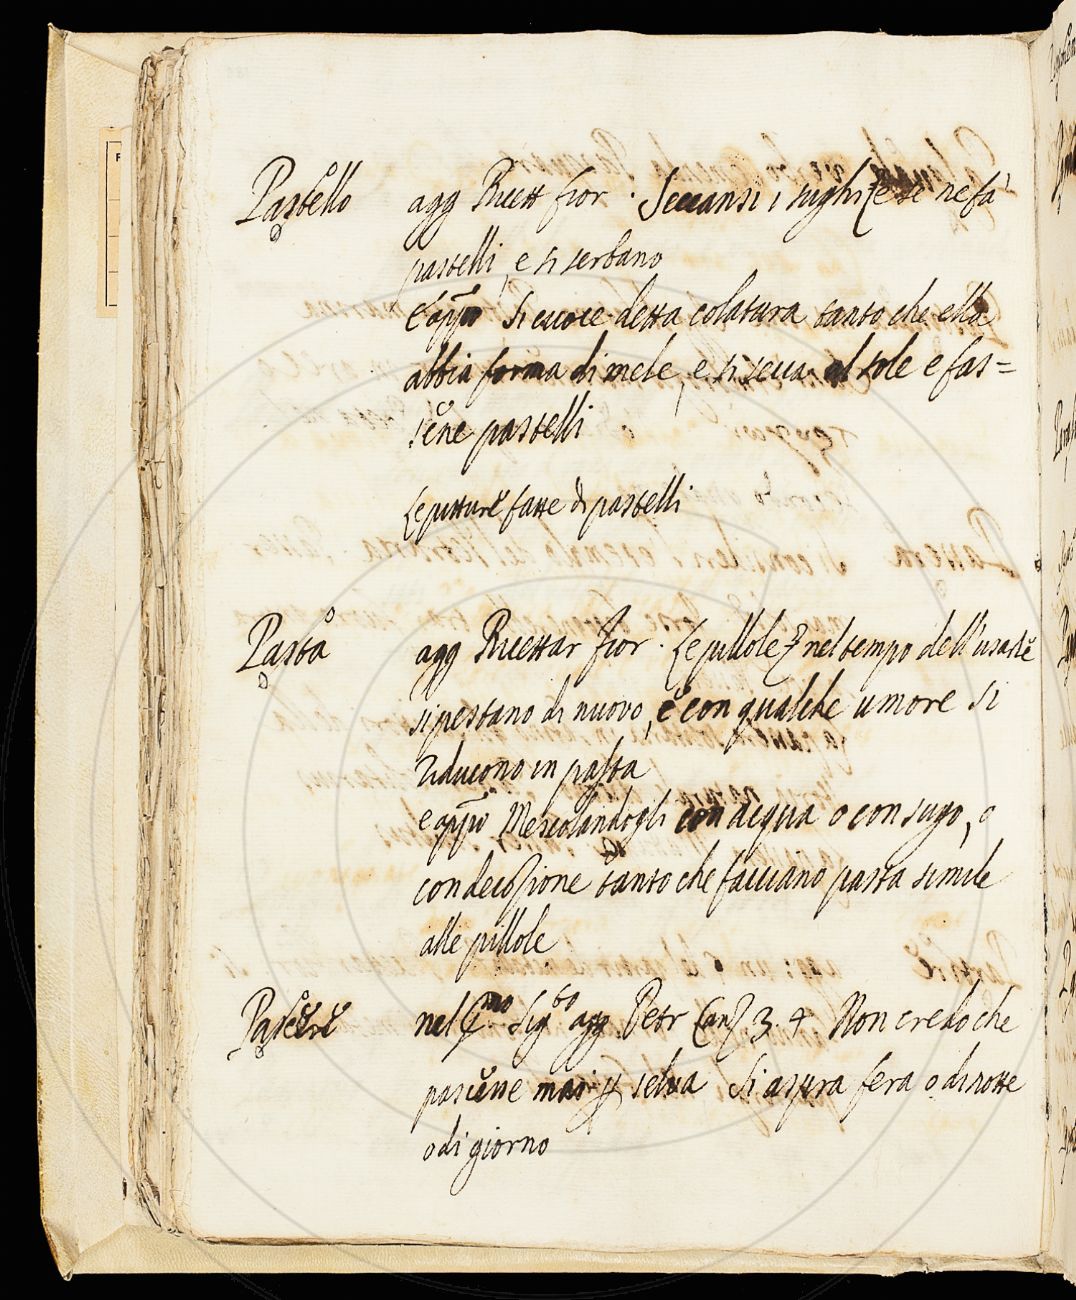 Pastello agg Ricett fior. Seccansi i sughi e se ne fa
pastelli, e si serbano
e appo Si cuoce detta colatura tanto che ella
abbia forma di mele, e si secca al sole e fas=
sene pastelli
Le pitture fatte di pastelli
Pasta agg Ricettar fior. Le pillole nel tempo dell'usarle
si pestano di nuovo, e con qualche umore si
riducono in pasta
e appo Mescolandogli con acqua o con sugo, o
con decozione tanto che facciano pasta simile
alle pillole
Pascere nel pmo sigto agg Petr Canz 3. 4 Non credo che
pascesse mai p selva Si aspra fera o di notte
o di giorno